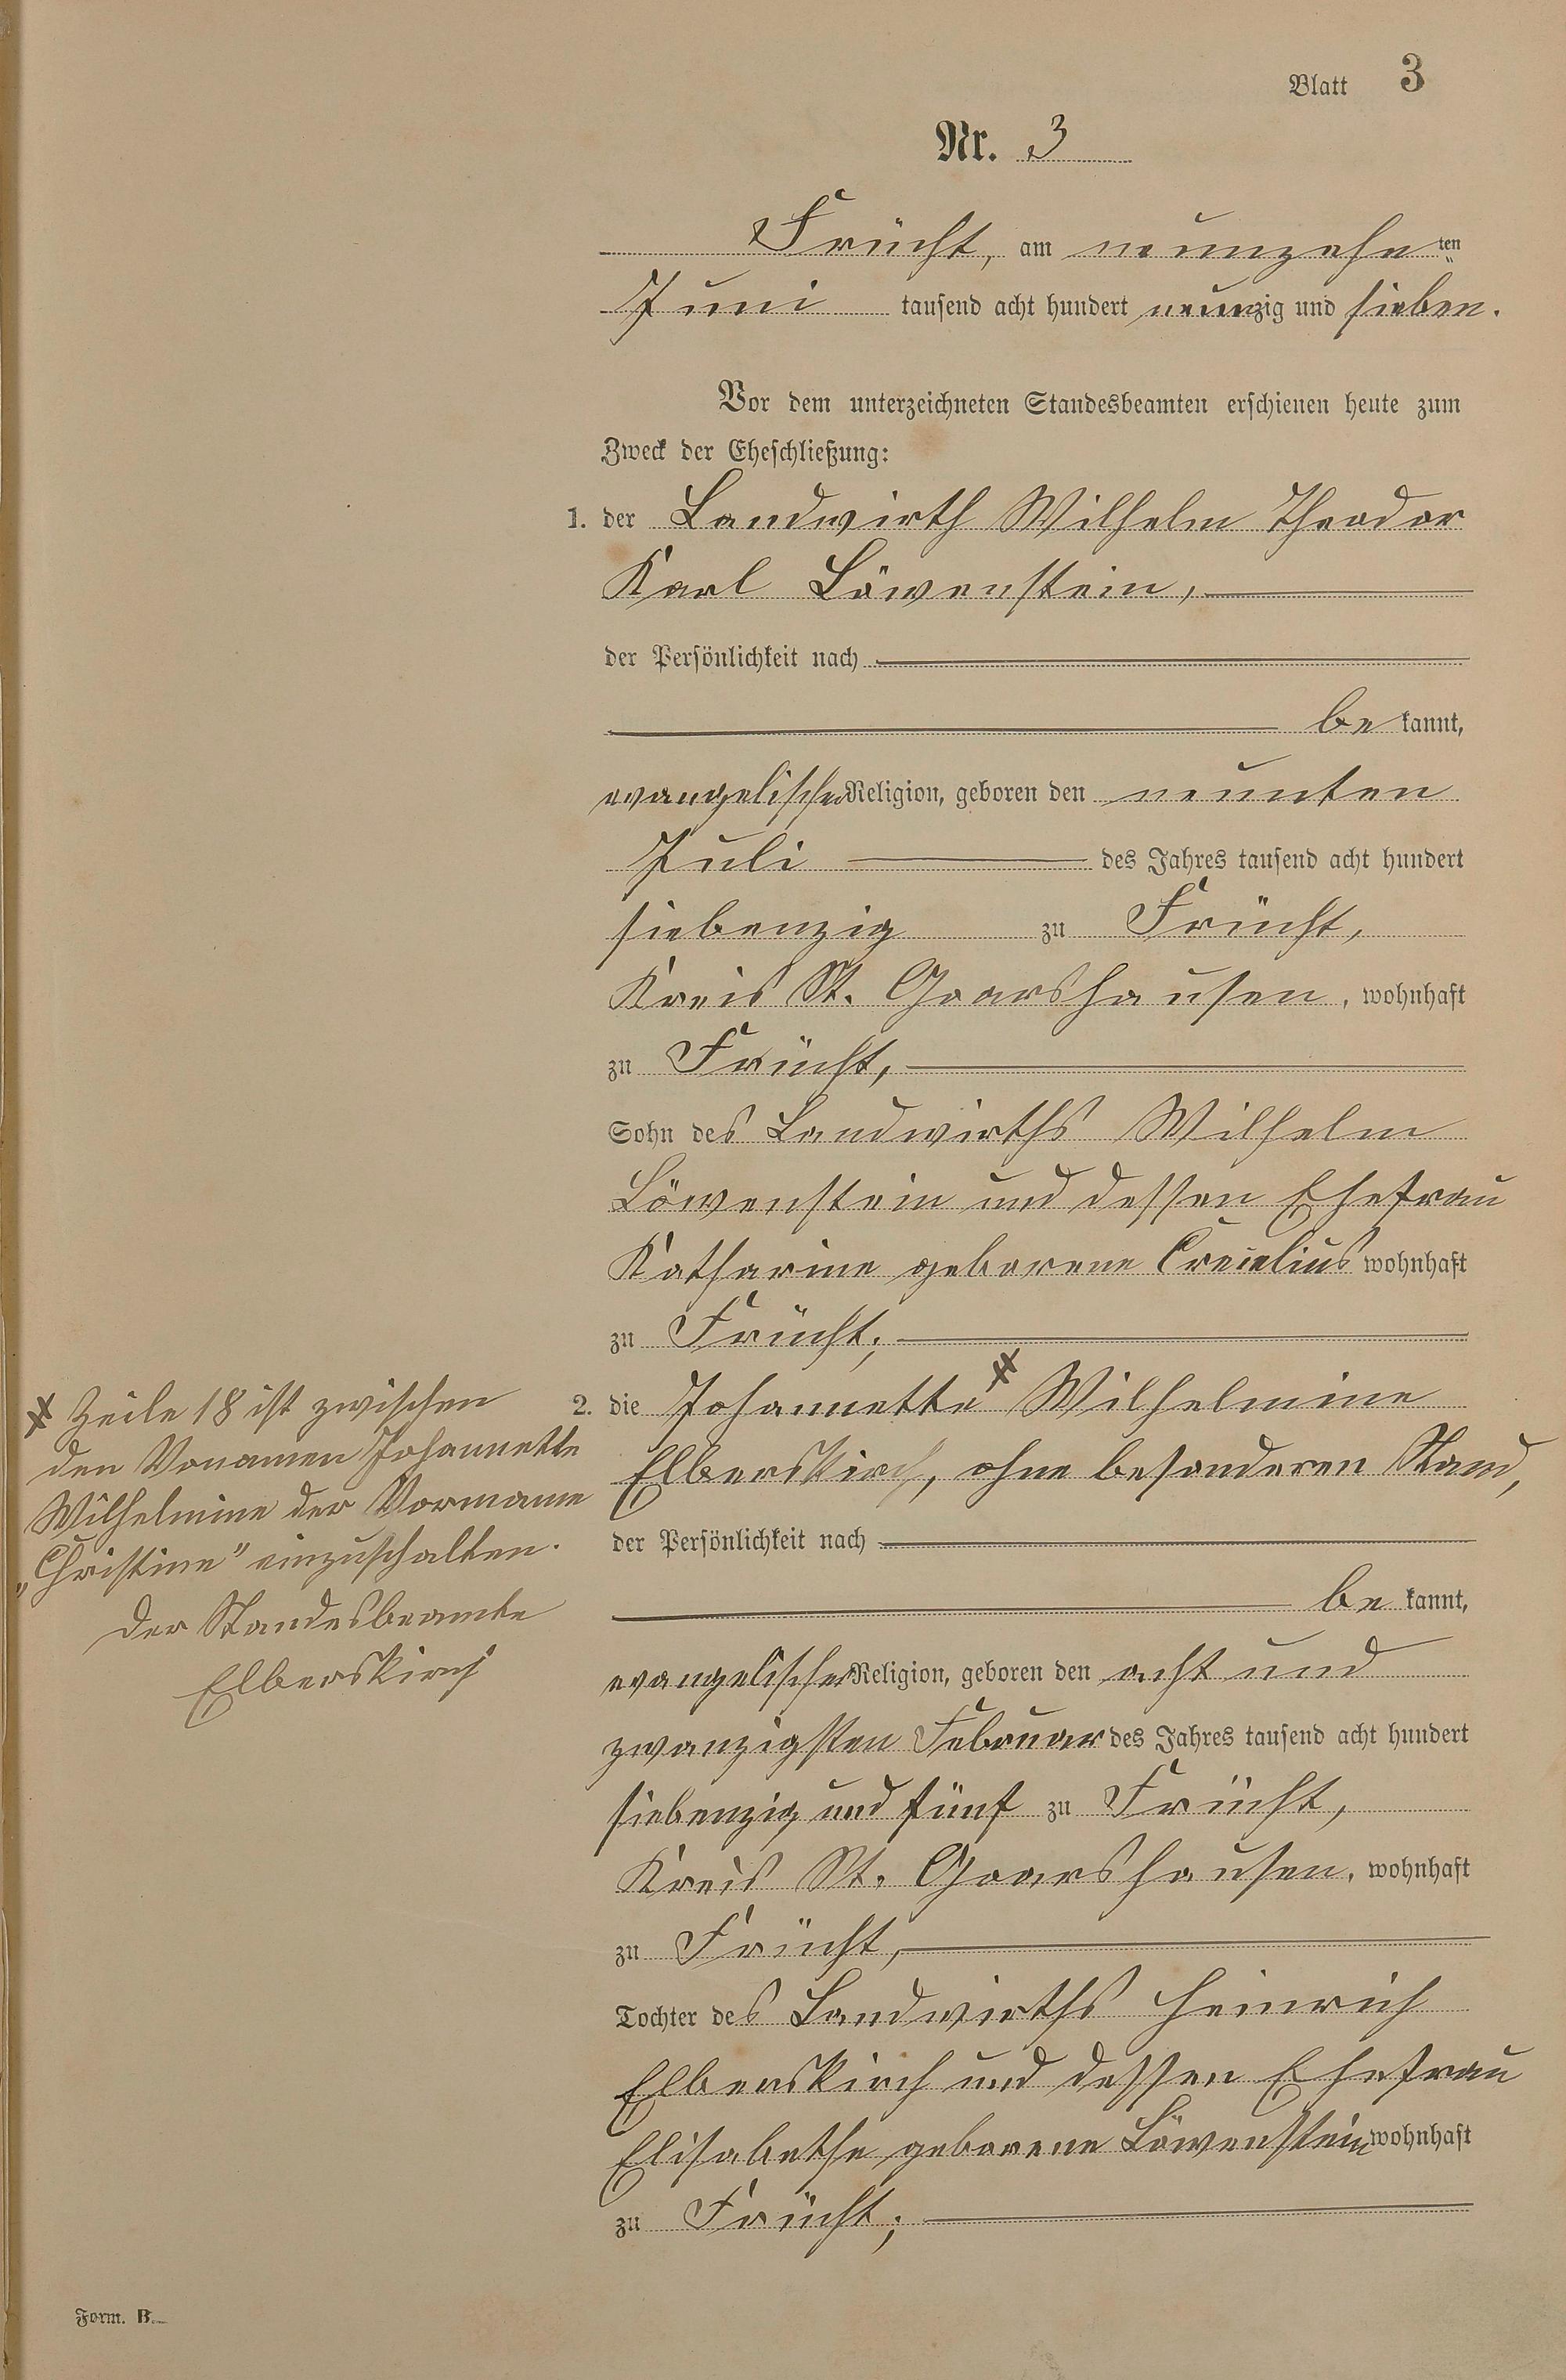 Blatt 3
Nr. 3
Frücht, am neunzehnten
Juni tausend acht hundert neunzig und sieben.
Vor dem unterzeichneten Standesbeamten erschienen heute zum
Zweck der Eheschließung:
1. der Landwirth Wilhelm Theodor
Karl Löwenstein,
der Persönlichkeit nach
be kannt,
evangelischer Religion, geboren den neunten
Juli des Jahres tausend acht hundert
siebenzig zu Frücht,
Kreis St. Goarshausen, wohnhaft
zu Frücht,
Sohn des Landwirths Wilhelm
Löwenstein und dessen Ehefrau
Katharine geborene Crecelius wohnhaft
zu Frücht;
2. die Johannette ⚹ Wilhelmine
Elberskirch, ohne besonderen Stand,
der Persönlichkeit nach
be kannt,
evangelischer Religion, geboren den acht und
zwanzigsten Februar des Jahres tausend acht hundert
siebenzig und fünf zu Frücht,
Kreis St. Goarshausen, wohnhaft
zu Frücht,
Tochter des Landwirths Heinrich
Elberskirch und dessen Ehefrau
Elisabethe geborene Löwenstein wohnhaft
zu Frücht;
⚹ Zeile 18 ist zwischen
den Vornamen Johannette
Wilhelmine der Vorname
„Christine" einzuschalten.
Der Standesbeamte
Elberskirch
Form. B.